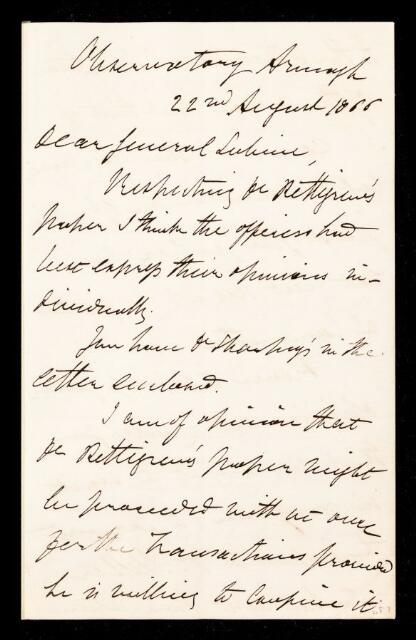 Observatory Armagh
22nd August 1866
Dear General Sabine,
Respecting Dr Pettigrew's
paper I think the officers had
best express their opinions in-
dividually.
You have Dr Sharpey's in the
letter enclosed.
I am of opinion that
Dr Pettigrew's paper might
be proceeded with at once
for the Transactions provided
he is willing to confine it